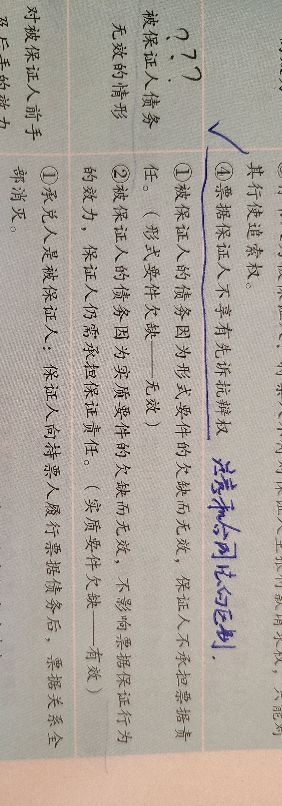 其行使追索权。
④票据保证人不享有先诉抗辩权
注意和合同法的区别.
???
被保证人债务
无效的情形
①被保证人的债务因为形式要件的欠缺而无效，保证人不承担票据责
任。（形式要件欠缺——无效）
②被保证人的债务因为实质要件的欠缺而无效，不影响票据保证行为
的效力，保证人仍需承担保证责任。（实质要件欠缺——有效）
对被保证人前手
及后手的效力
①承兑人是被保证人：保证人向持票人履行票据债务后，票据关系全
部消灭。